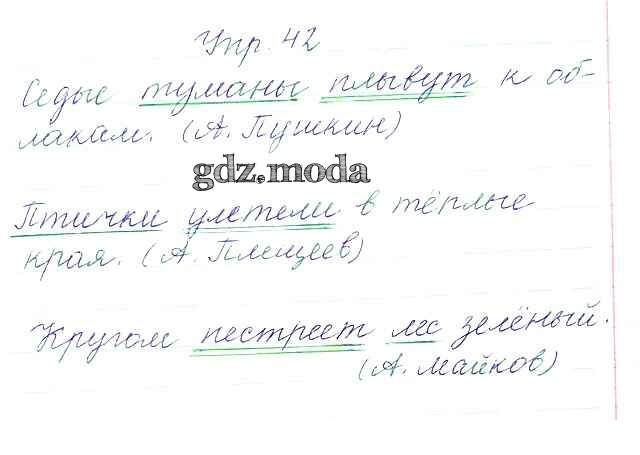 Упр. 42
Седые туманы плывут к об-
лакам. (А. Пушкин)
gdz.moda
Птички улетели в тёплые
края. (А. Плещеев)
Кругом пестреет лес зелёный.
(А. Майков)